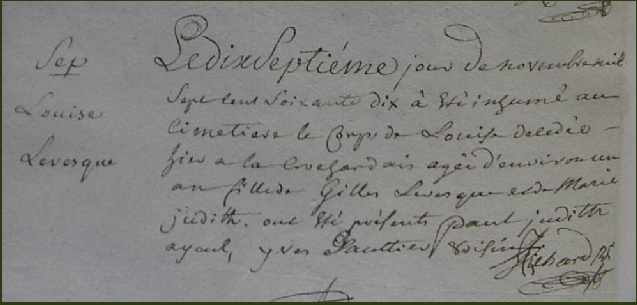 Sep
Louise
Levesque
Le dix Septiéme jour de novembre mil
Sept cens Soixante dix à été inhumé au
cimetiere le Corps de Louise decedée
hier a la agée d'environ un
an fille de Gilles Levesque et de Marie
judith. ont été présents paul judith
ayeul, yves Gaultier voisin
Richard